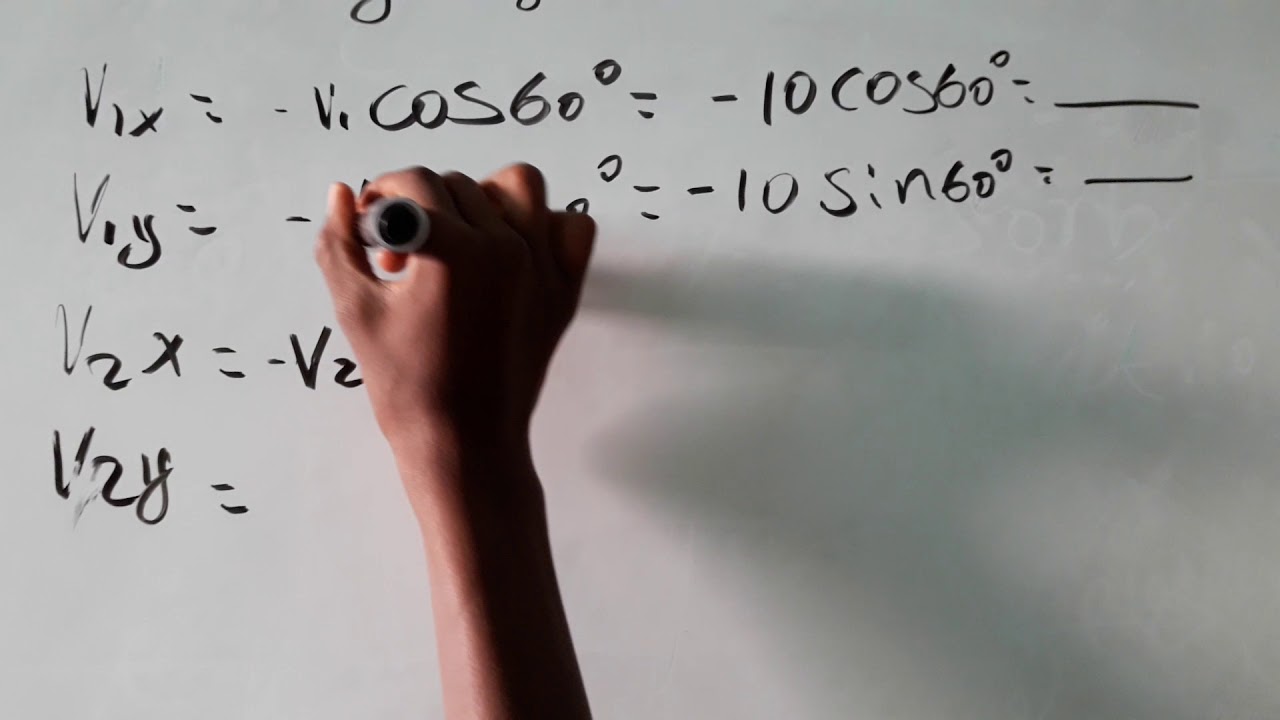 V₁x = -V₁cos60° = -10cos60° = ___
V₁y = - ° = -10sin60° = ___
V₂x = -V₂
V₂y =